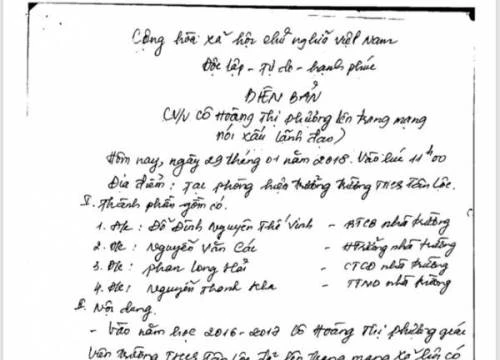 Cộng hòa xã hội chủ nghĩa việt Nam
Độc lập - Tự do - hạnh phúc
BIÊN BẢN
(V/v Cô Hoàng Thị phượng lên trang mạng
nói xấu lãnh đạo)
Hôm nay, ngày 29 tháng 01 năm 2018. Vào lúc 11h00
Địa điểm: Tại phòng hiệu trưởng trường THCS Tân Lộc.
I. Thành phần gồm có.
1. Đ/c: Đỗ Đình Nguyên Thế Vinh - BTCB nhà trường
2. Đ/c: Nguyễn Văn Các - HTrưởng nhà trường
3. Đ/c: phan Long Hải - CTCĐ nhà trường
4. Đ/c: Nguyễn Thanh - TTND nhà trường
II. Nội dung.
- Vào năm học 2016-2017 Cô Hoàng Thị phượng giáo
viên trường THCS Tân Lộc đã lên trang mạng có